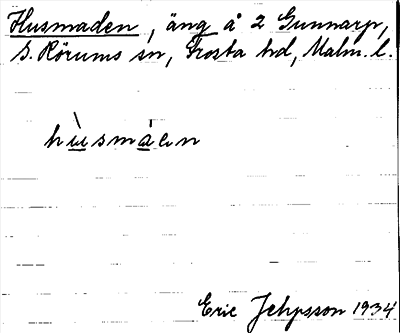 Husmaden, äng å 2 Gunnarp,
S. Rörums sn, Frosta hd, Malm. l.
hùsmàen
Eric Jehpsson 1934